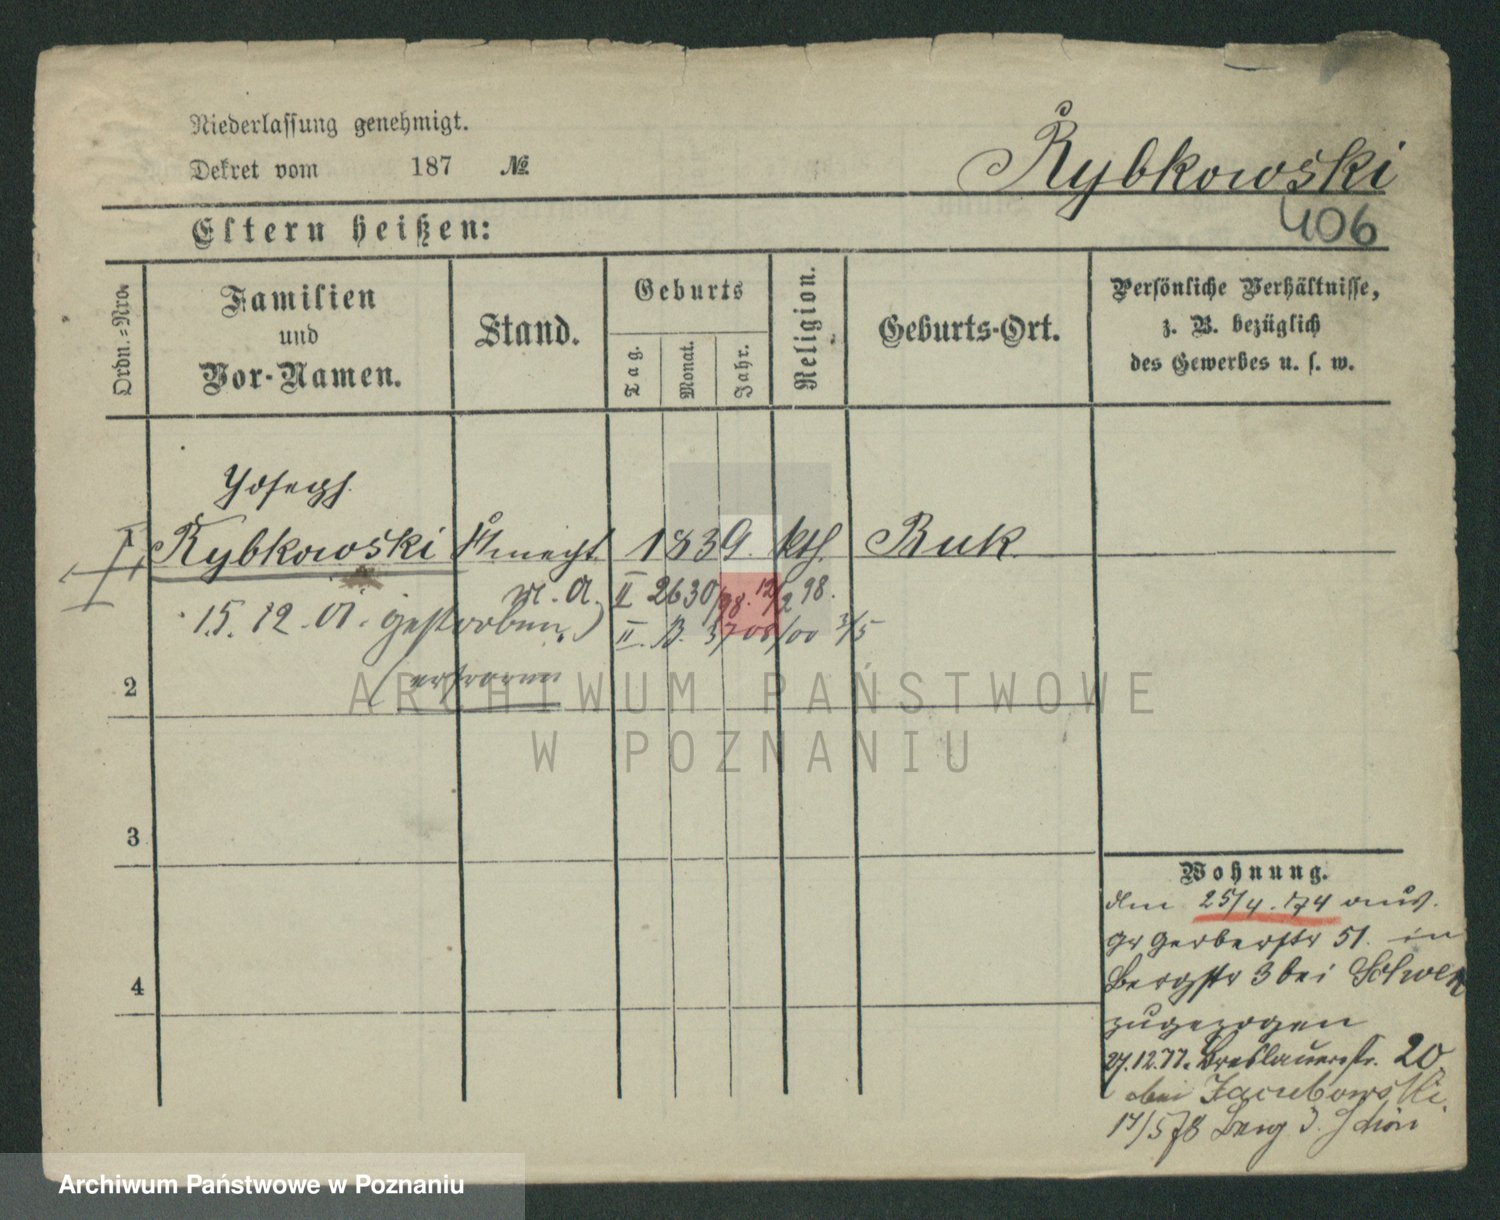 Niederlassung genehmigt.
Dekret vom 187 №
Rybkowski
406
Eltern heißen:
Ordn.-Nro.
Familien
und
Vor-Namen.
Stand.
Geburts
Tag.
Monat.
Jahr.
Religion.
Geburts-Ort.
Persönliche Verhältnisse,
z. B. bezüglich
des Gewerbes u. s. w.
Joseph
1 Rybkowski Knecht 1839. kth. Buk
II 2630/98. 12/2 98.
15. 12. 01. gestorben
II. B. 3708/00 3/5
2
3
4
Wohnung.
den 25/4. 74 aus
gr Gerberstr 51. in
Bergstr 3 bei
zugezogen
27.12.77. Breslauerstr. 20
bei Jacubowski.
17/5 78 Berg 3.
ARCHIWUM PAŃSTWOWE
W POZNANIU
Archiwum Państwowe w Poznaniu